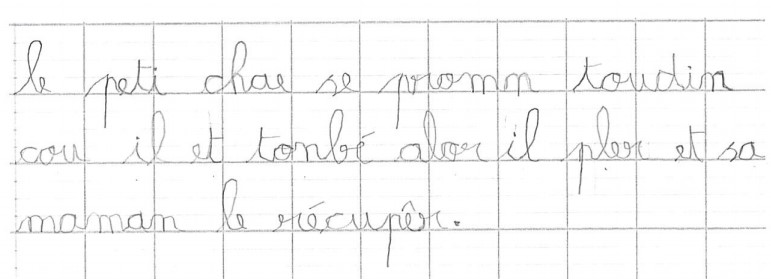 le peti chae se promn toudin
cou il et tonbé alor il pler et sa
maman le récupêr.